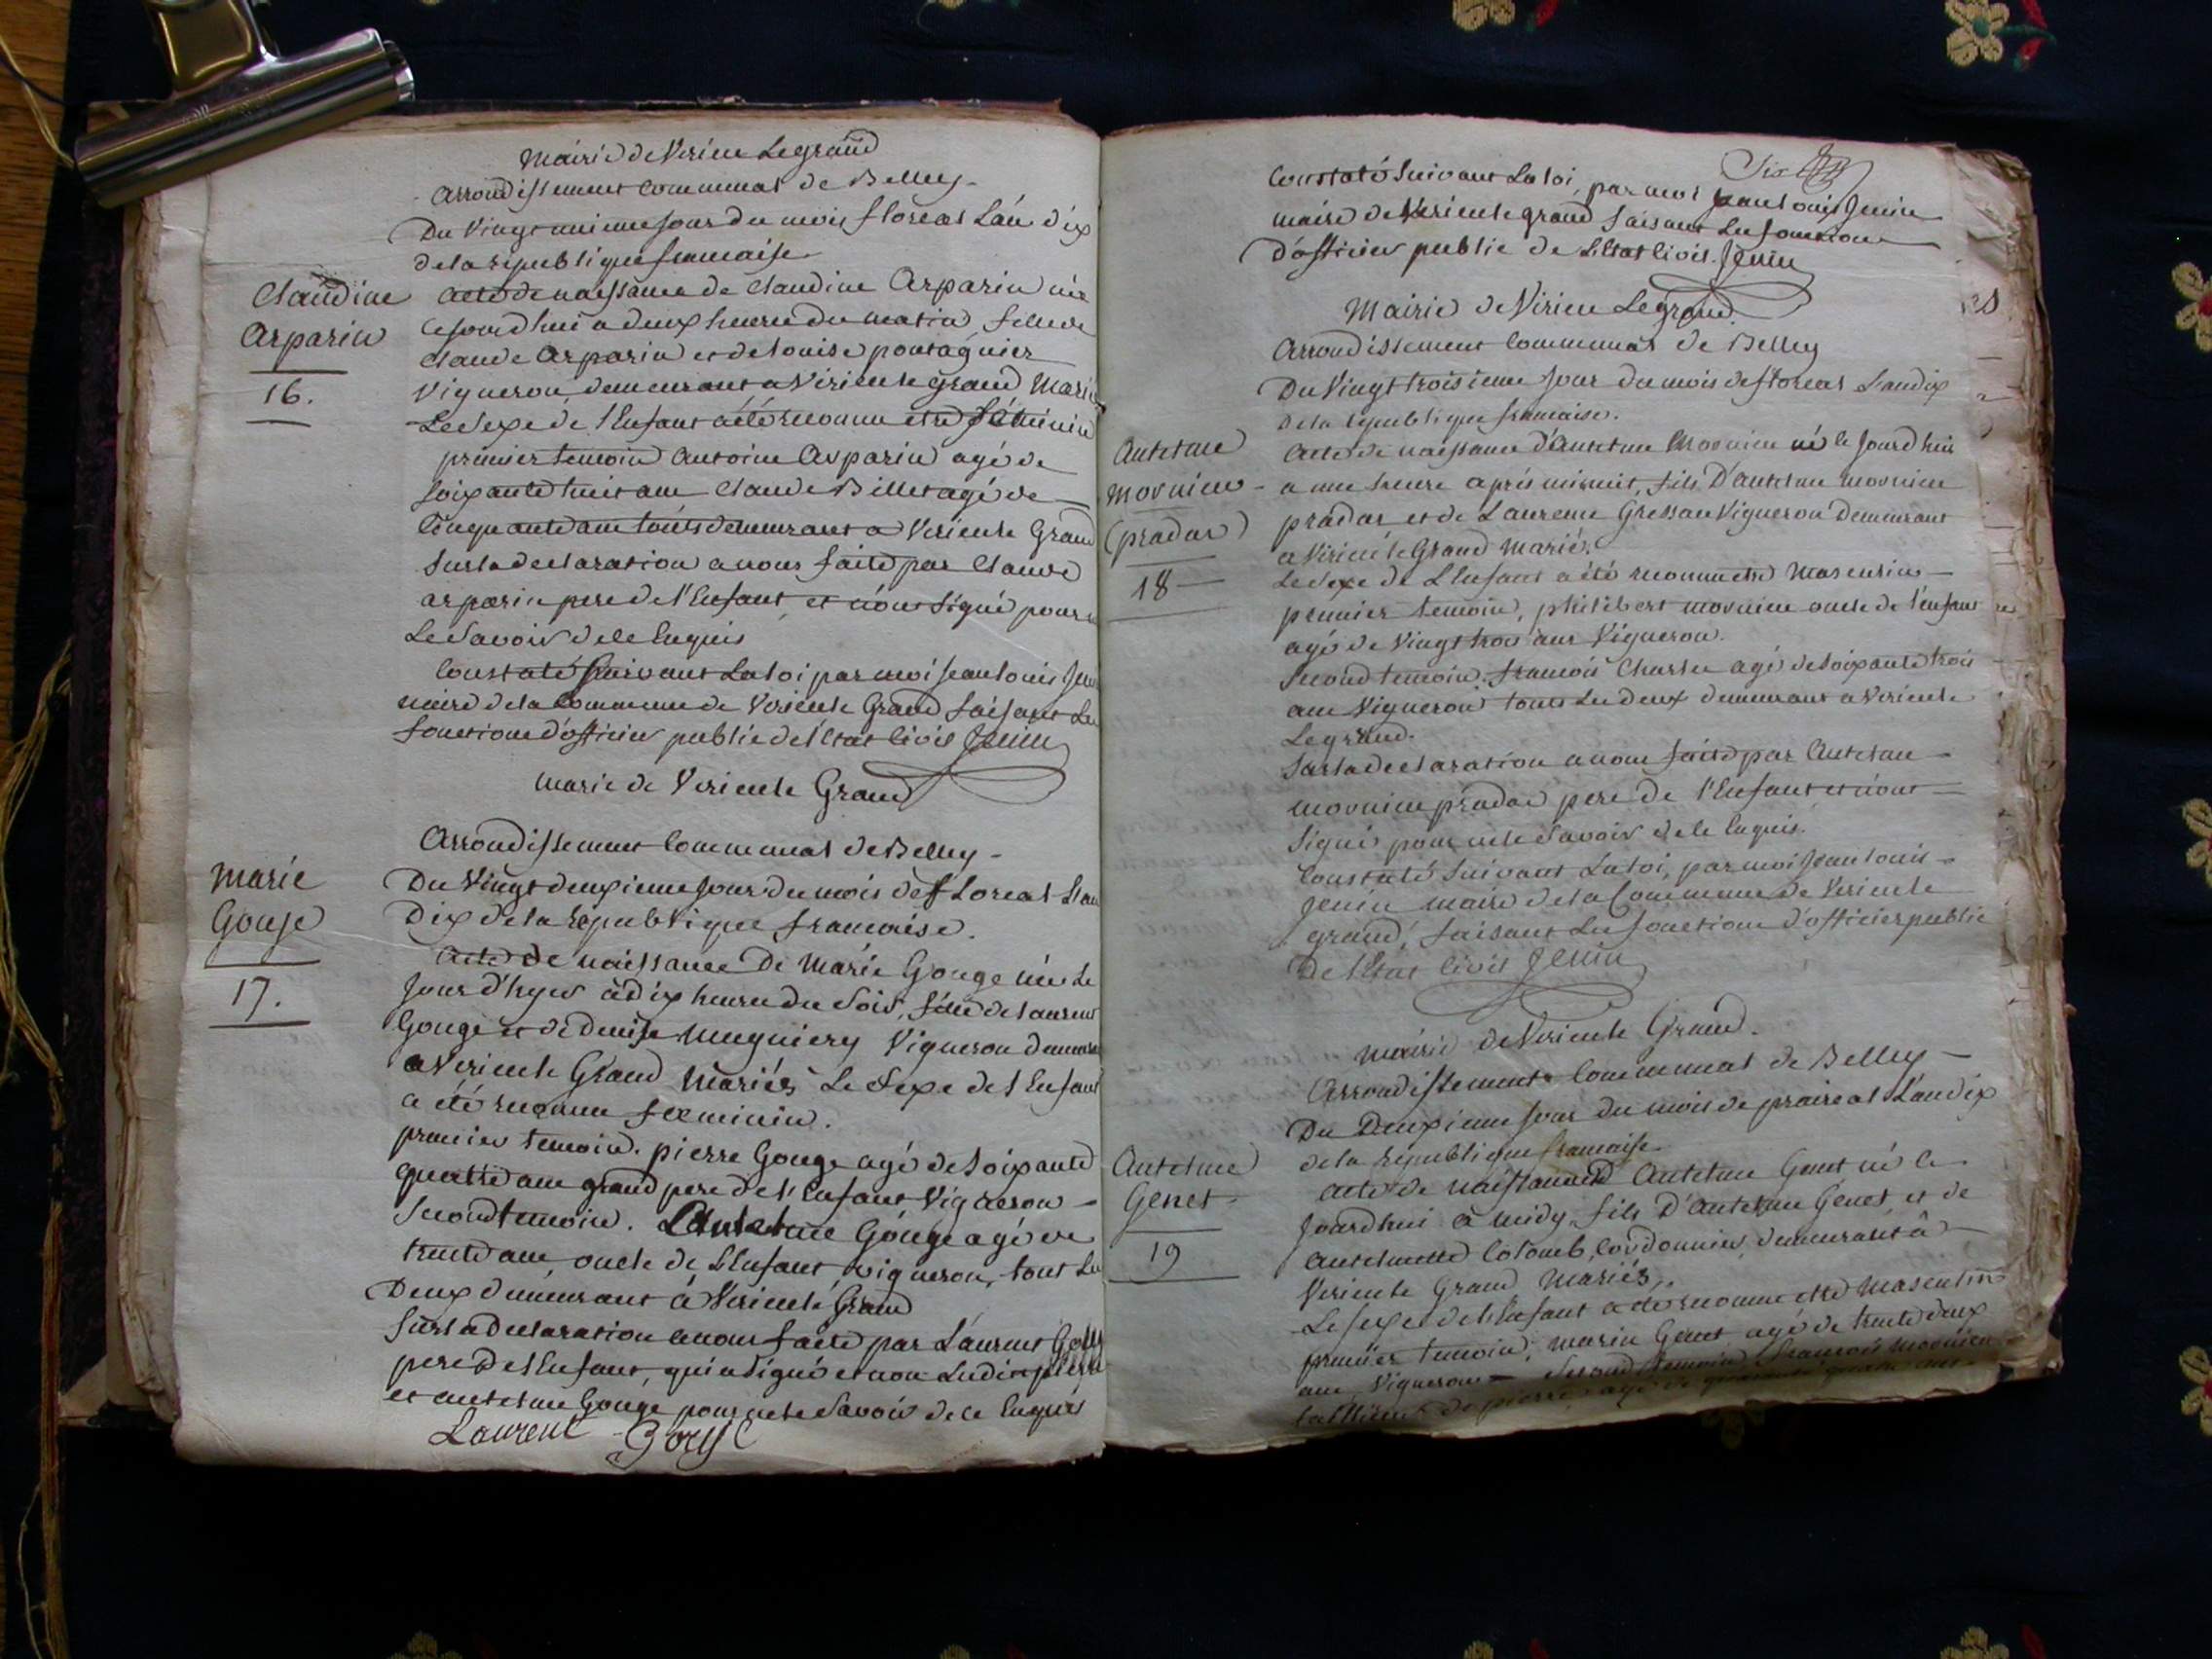 Mairie de Virieu Legrand
arrondissement Communal de Belley
Du vingt unieme jour du mois floreal L'an dix
de la republique francaise
Claudine
Arparin
16.
acte de naissance de Claudine Arparin née
cejourdhui a deux heures du matin, fille de
Claude Arparin et de Louise pontagnier
Vigneron, demeurant a Virieu le Grand Marié
Le Sexe de l'Enfant a été reconnu etre féminin
premier temoin Antoine Arparin agé de
soixante huit ans Claude Billet agé de
Cinquante ans touts demeurant a Virieu le Grand
Sur la declaration a nous faite par Claude
arparin pere de l'Enfant, et n'ont signé pour
Le Savoir de ce Enquis
Constaté Suivant La Loi par moi Jean Louis Jenin
maire de la Commune de Virieu le Grand faisant Les
fonctions d'officier public de l'Etat Civil Jenin
Marie de Virieu le Grand
Arrondissement Communal de Belley
Marie
Gouje
17.
Du Vingt deuxieme Jour du mois de floreal L'an
Dix de la Republique francoise.
Acte de naissance De Marie Gouge née le
Jour d'hyer à dix heures du Soir, fille de Laurent
Gouge et de Denise Mugniery Vigneron demeurant
a Virieu le Grand Mariés Le Sexe de l Enfant
a été reconnu feminin.
premier temoin. pierre Gouge agé de Soixante
quatre ans grand pere de l'Enfant Vigneron
Second temoin. Antelme Gouge agé de
trente ans, oncle de L'Enfant vigneron, tout Les
Deux demeurant à Virieu le Grand
Sur la declaration a nous faite par Laurent Gouge
pere de l'Enfant, qui a Signé et non Ledit pierre
et antelme Gouge pour ne le Savoir de ce Enquis
Laurent Gouje
Six
Constaté Suivant La loi, par moi Jean Louis Jenin
maire de Virieu le grand faisant Les fonctions
D'officier public de L'Etat Civil. Jenin
Mairie de Virieu Legrand.
Arrondissement Communal de Belley
Du Vingt troisieme Jour du mois de floreal L'an dix
de la republique francaise.
Antelme
Mornieu
(pradar)
18
Acte de naissance d'Antelme Mornieu né le Jourd'hui
a une heure aprés minuit, fils D'antelme mornieu
pradar et de Laurence Gressau Vigneron Demeurant
a Virieu le Grand Marié.
Le Sexe de L'Enfant a été reconnu etre Masculin
premier temoin, philibert mornieu oncle de l'enfant
agé de Vingt trois ans Vigneron.
Second temoin. francois Charles agé de Soixante trois
ans Vigneron touts Les deux demeurant a Virieu le
Legrand.
Sur la declaration a nous faite par Antelme
mornieu pradar pere de l'Enfant et n'ont
Signé pour ne le Savoir de ce Enquis.
Constaté Suivant La loi, par moi Jean Louis
Jenin maire de la Commune de Virieu le
grand, faisant Les fonctions d'officier public
De l'Etat Civil Jenin
Mairie de Virieu le Grand.
Arrondissement Communal de Belley
Du Deuxieme Jour du mois de praireal L'an dix
de la republique francaise
Antelme
Genet
19
acte de naissance D Antelme Genet né le
Jourdhui à midy, fils D'antelme Genet, et de
Antelmette Colomb, Cordonnier, demeurant à
Virieu le Grand Mariés,
Le Sexe de l'Enfant a été reconnu etre Masculin
premier temoin; marin Genet agé de trente deux
ans Vigneron Second temoin francois Mornieu